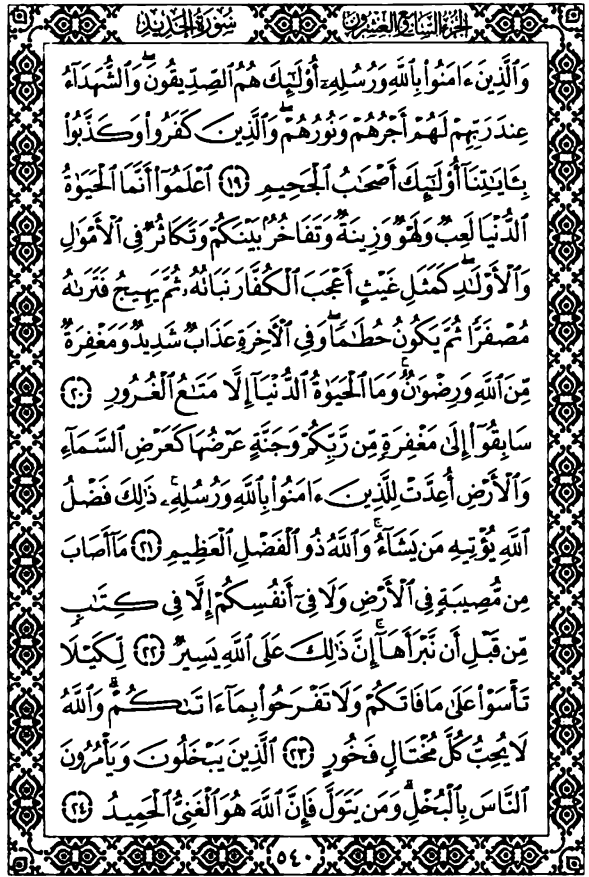 سُورَةُ الحَدِيدِ الجُزءُ السَّابِعُ وَالعِشْرُونَ
وَٱلَّذِينَ ءَامَنُوا۟ بِٱللَّهِ وَرُسُلِهِۦٓ أُو۟لَٰٓئِكَ هُمُ ٱلصِّدِّيقُونَ ۖ وَٱلشُّهَدَآءُ
عِندَ رَبِّهِمْ لَهُمْ أَجْرُهُمْ وَنُورُهُمْ ۖ وَٱلَّذِينَ كَفَرُوا۟ وَكَذَّبُوا۟
بِـَٔايَٰتِنَآ أُو۟لَٰٓئِكَ أَصْحَٰبُ ٱلْجَحِيمِ ١٩ ٱعْلَمُوٓا۟ أَنَّمَا ٱلْحَيَوٰةُ
ٱلدُّنْيَا لَعِبٌ وَلَهْوٌ وَزِينَةٌ وَتَفَاخُرٌۢ بَيْنَكُمْ وَتَكَاثُرٌ فِى ٱلْأَمْوَٰلِ
وَٱلْأَوْلَٰدِ ۖ كَمَثَلِ غَيْثٍ أَعْجَبَ ٱلْكُفَّارَ نَبَاتُهُۥ ثُمَّ يَهِيجُ فَتَرَىٰهُ
مُصْفَرًّا ثُمَّ يَكُونُ حُطَٰمًا ۖ وَفِى ٱلْءَاخِرَةِ عَذَابٌ شَدِيدٌ وَمَغْفِرَةٌ
مِّنَ ٱللَّهِ وَرِضْوَٰنٌ ۚ وَمَا ٱلْحَيَوٰةُ ٱلدُّنْيَآ إِلَّا مَتَٰعُ ٱلْغُرُورِ ٢٠
سَابِقُوٓا۟ إِلَىٰ مَغْفِرَةٍ مِّن رَّبِّكُمْ وَجَنَّةٍ عَرْضُهَا كَعَرْضِ ٱلسَّمَآءِ
وَٱلْأَرْضِ أُعِدَّتْ لِلَّذِينَ ءَامَنُوا۟ بِٱللَّهِ وَرُسُلِهِۦ ۚ ذَٰلِكَ فَضْلُ
ٱللَّهِ يُؤْتِيهِ مَن يَشَآءُ ۚ وَٱللَّهُ ذُو ٱلْفَضْلِ ٱلْعَظِيمِ ٢١ مَآ أَصَابَ
مِن مُّصِيبَةٍ فِى ٱلْأَرْضِ وَلَا فِىٓ أَنفُسِكُمْ إِلَّا فِى كِتَٰبٍ
مِّن قَبْلِ أَن نَّبْرَأَهَآ ۚ إِنَّ ذَٰلِكَ عَلَى ٱللَّهِ يَسِيرٌ ٢٢ لِّكَيْلَا
تَأْسَوْا۟ عَلَىٰ مَا فَاتَكُمْ وَلَا تَفْرَحُوا۟ بِمَآ ءَاتَىٰكُمْ ۗ وَٱللَّهُ
لَا يُحِبُّ كُلَّ مُخْتَالٍ فَخُورٍ ٢٣ ٱلَّذِينَ يَبْخَلُونَ وَيَأْمُرُونَ
ٱلنَّاسَ بِٱلْبُخْلِ ۗ وَمَن يَتَوَلَّ فَإِنَّ ٱللَّهَ هُوَ ٱلْغَنِىُّ ٱلْحَمِيدُ ٢٤
٥٤٠